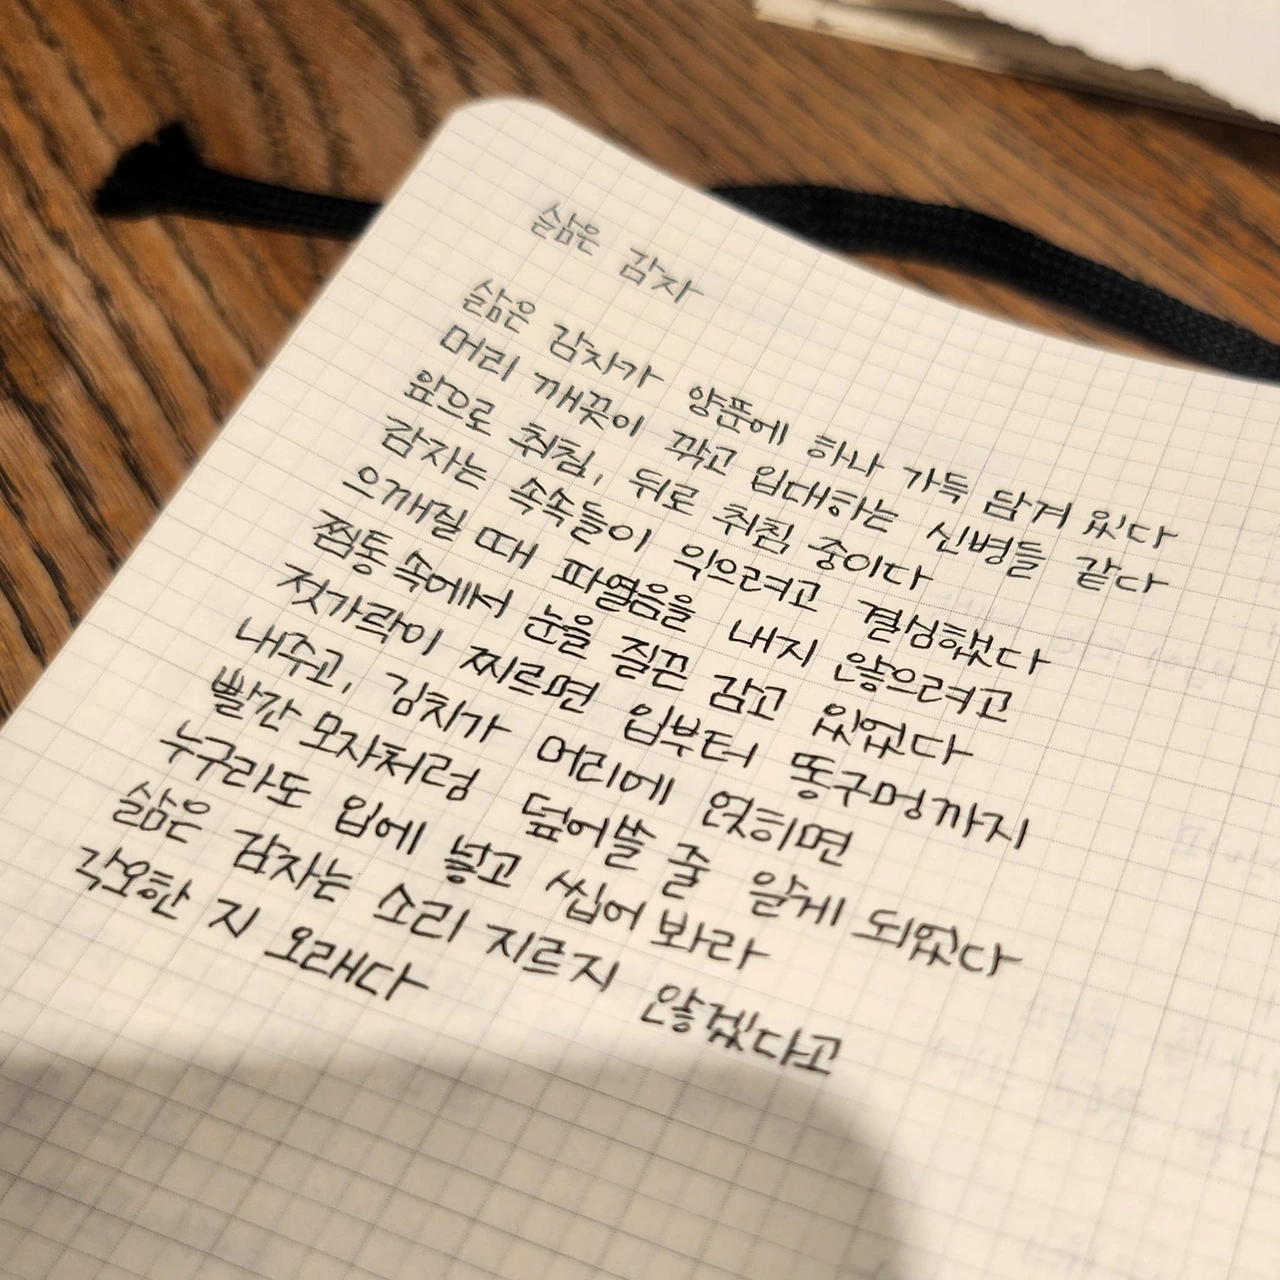 삶은 감자
삶은 감자가 양푼에 하나 가득 담겨 있다
머리 깨끗이 깎고 입대하는 신병들 같다
앞으로 취침, 뒤로 취침 중이다
감자는 속속들이 익으려고 결심했다
으깨질 때 파열음을 내지 않으려고
찜통 속에서 눈을 질끈 감고 있었다
젓가락이 찌르면 입부터 똥구멍까지
내주고, 김치가 머리에 얹히면
빨간 모자처럼 덮어쓸 줄 알게 되었다
누구라도 입에 넣고 씹어 봐라
삶은 감자는 소리 지르지 않겠다고
각오한 지 오래다